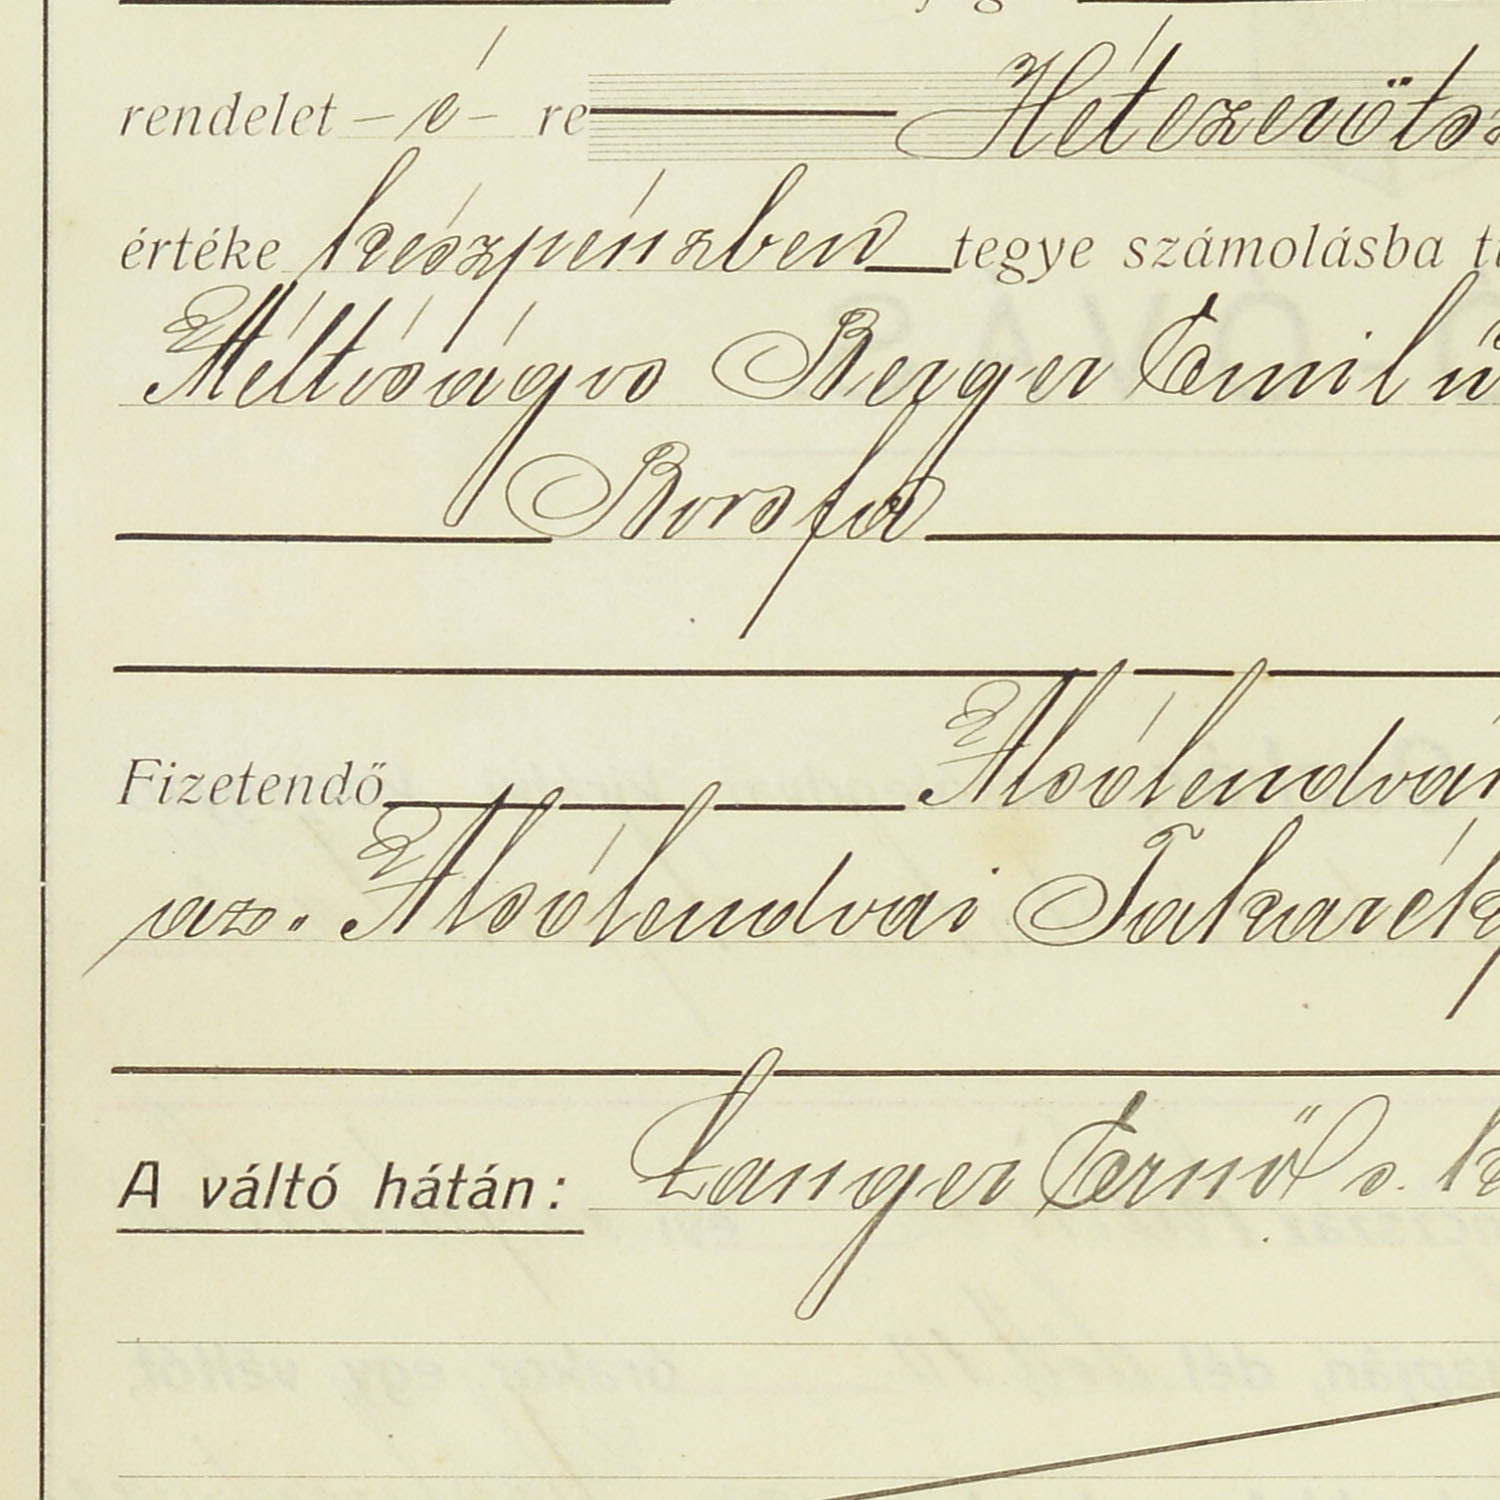 rendelet – é – re Hétezerötsz
értéke készpénzben tegye számolásba
Méltóságos Berger Emil
Borsfa
Fizetendő Alsólendván
az. Alsólendvai Takarékp
A váltó hátán: Langer Ernő s. k